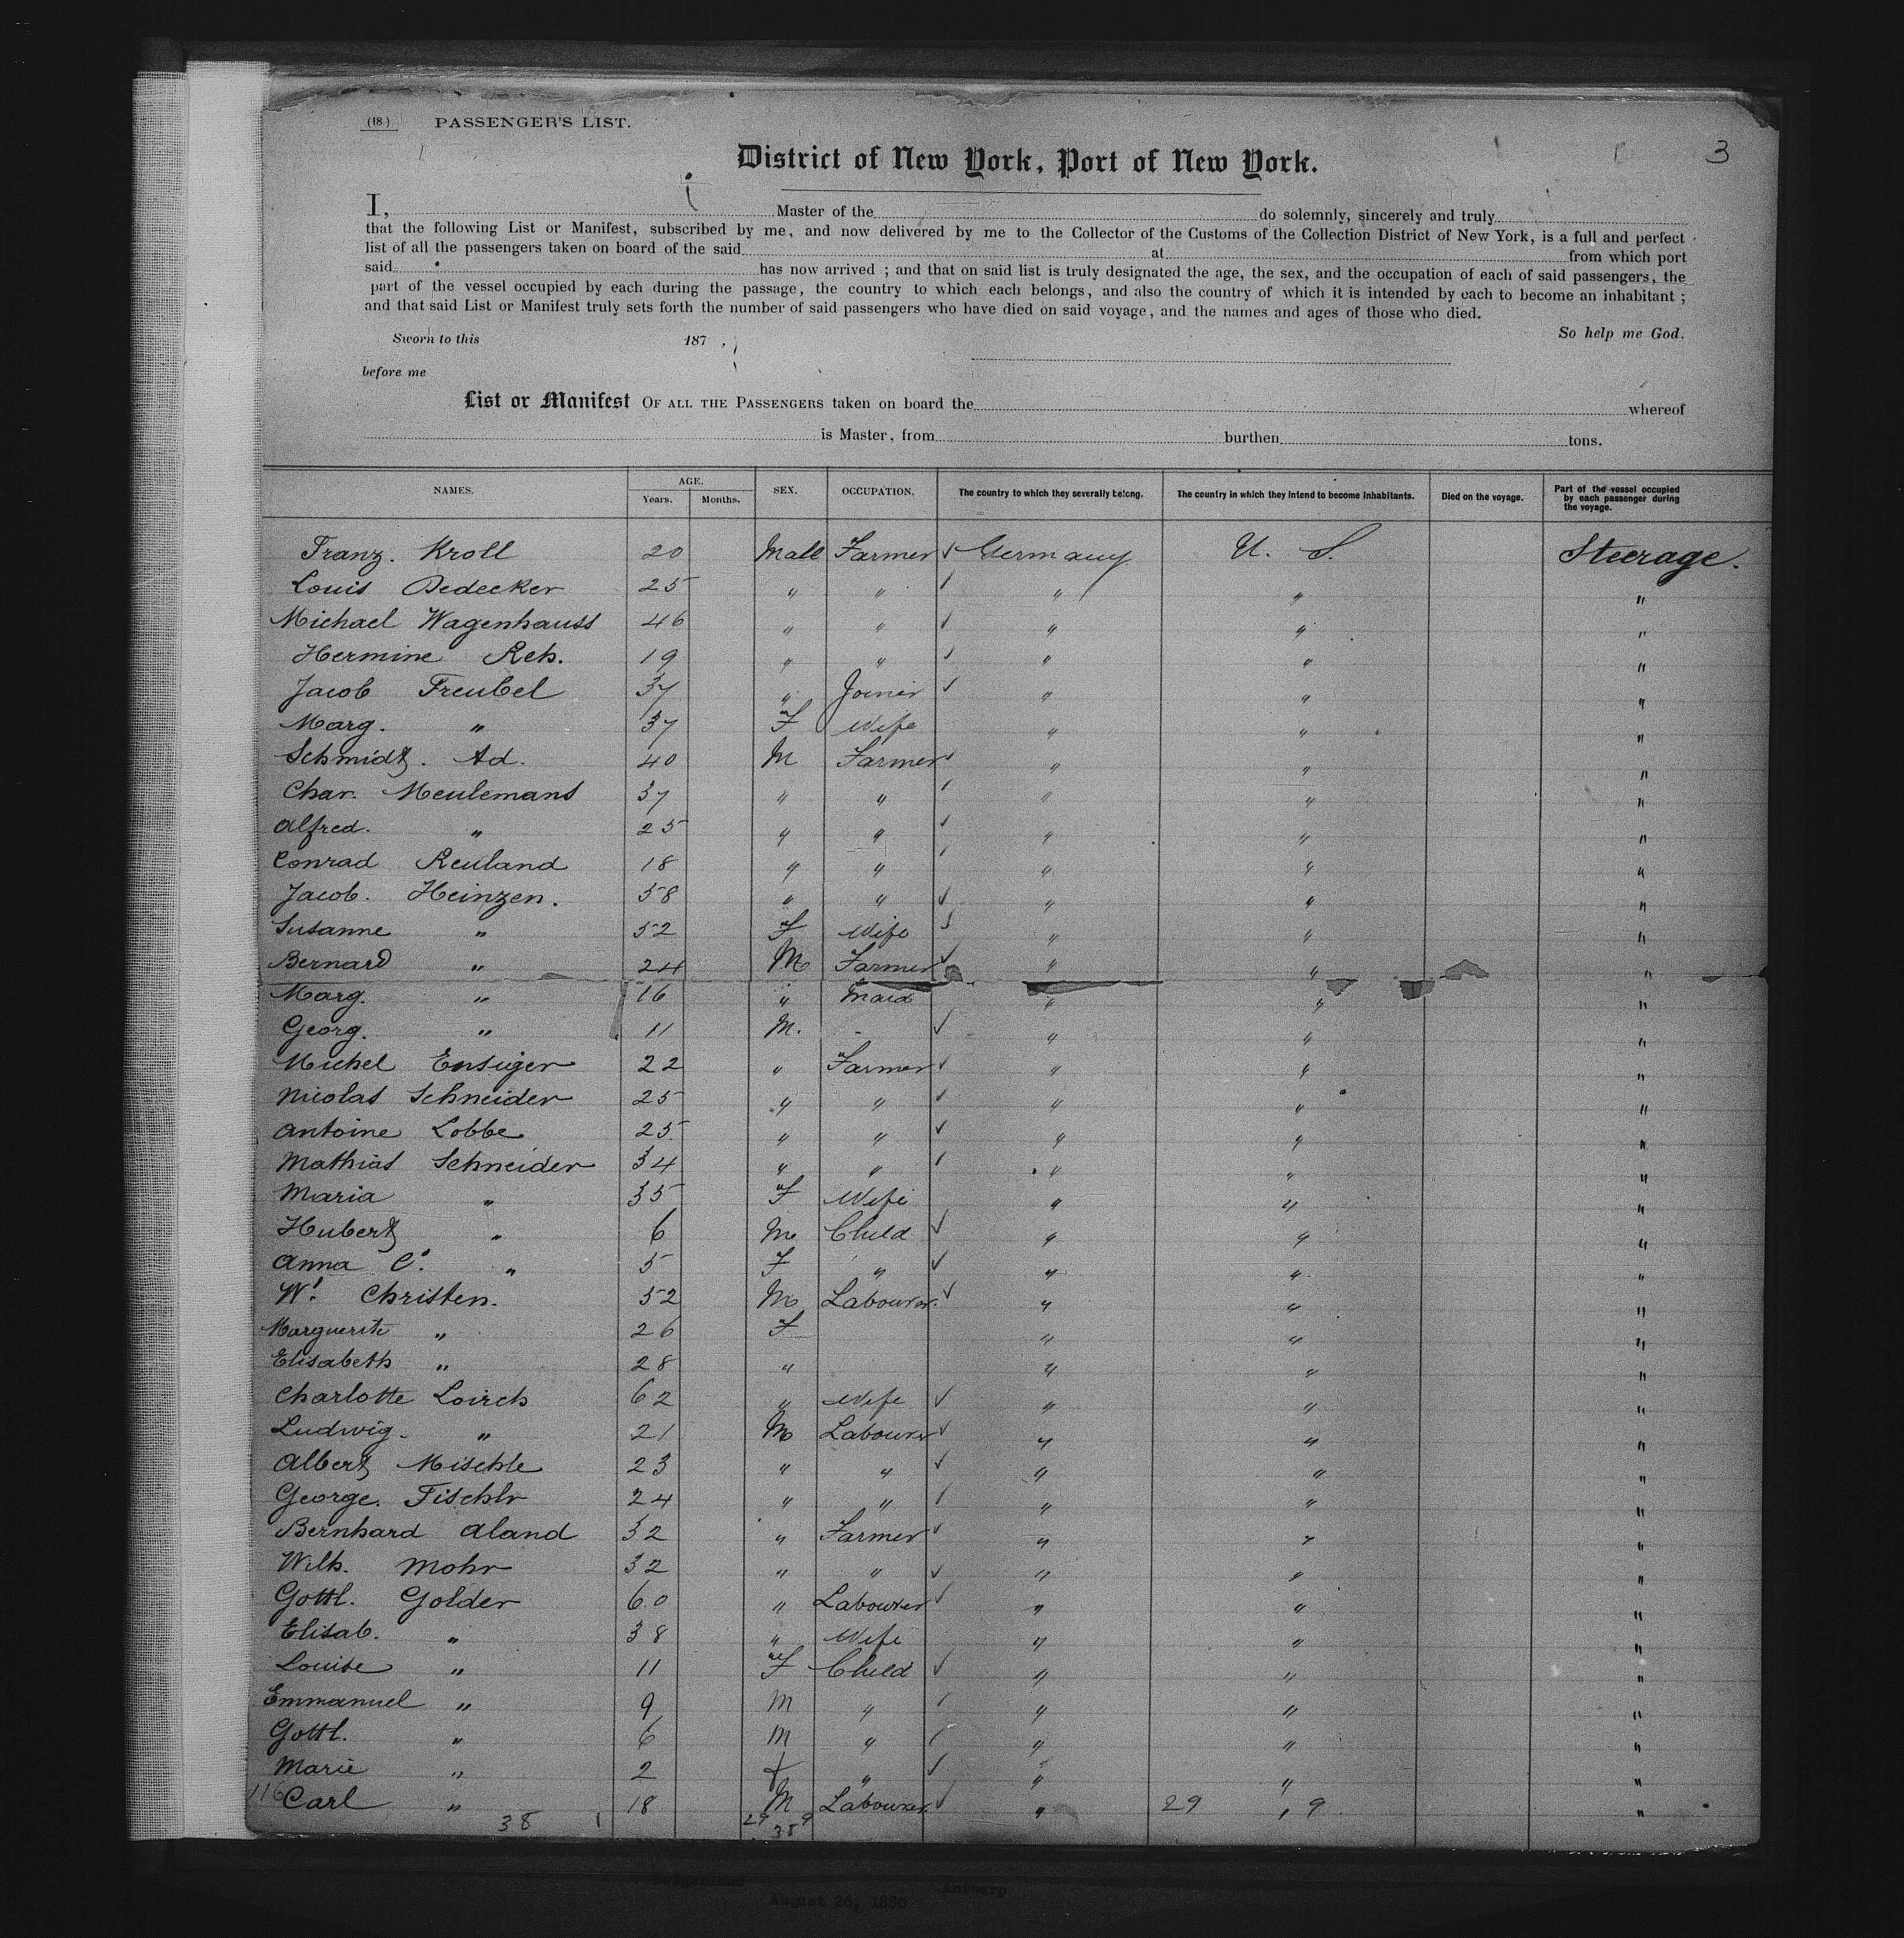 (18) PASSENGER'S LIST.
3
District of New York, Port of New York.
I, Master of the do solemnly, sincerely and truly
that the following List or Manifest, subscribed by me, and now delivered by me to the Collector of the Customs of the Collection District of New York, is a full and perfect
list of all the passengers taken on board of the said at from which port
said has now arrived ; and that on said list is truly designated the age, the sex, and the occupation of each of said passengers, the
part of the vessel occupied by each during the passage, the country to which each belongs, and also the country of which it is intended by each to become an inhabitant ;
and that said List or Manifest truly sets forth the number of said passengers who have died on said voyage, and the names and ages of those who died.
Sworn to this 187 , So help me God.
before me
List or Manifest OF ALL THE PASSENGERS taken on board the whereof
is Master, from burthen tons.
NAMES. AGE. Years. Months. SEX. OCCUPATION. The country to which they severally belong. The country in which they intend to become inhabitants. Died on the voyage. Part of the vessel occupied by each passenger during the voyage.
Franz. Kroll 20 Male Farmer ✓ Germany U. S. Steerage.
Louis Dedecker 25 " " ✓ " " "
Michael Wagenhauss 46 " " ✓ " " "
Hermine Reh. 19 " " ✓ " " "
Jacob Freubel 37 " Joiner ✓ " " "
Marg. " 37 F Wife " " "
Schmidt. Ad. 40 M Farmer ✓ " " "
Char. Meulemans 37 " " ✓ " " "
Alfred. " 25 " " ✓ " " "
Conrad Reuland 18 " " ✓ " " "
Jacob. Heinzen. 58 " " ✓ " " "
Susanne " 52 F Wife ✓ " " "
Bernard " 24 M Farmer ✓ " " "
Marg. " 16 " Maid " " "
Georg. " 11 M. - ✓ " " "
Michel Ensiger 22 " Farmer ✓ " " "
Nicolas Schneider 25 " " ✓ " " "
Antoine Lobbe 25 " " ✓ " " "
Mathias Schneider 34 " " ✓ " " "
Maria " 35 F Wife " " "
Hubert " 6 M Child ✓ " " "
Anna C. " 5 F " ✓ " " "
W. Christen. 52 M Labourer. ✓ " " "
Marguerite " 26 F " " "
Elisabeth " 28 " " " "
Charlotte Loirch 62 " Wife ✓ " " "
Ludwig. " 21 M Labourer ✓ " " "
Albert Mischle 23 " " ✓ " " "
George. Fischlr 24 " " ✓ " " "
Bernhard Aland 32 " Farmer ✓ " " "
Wilh. Mohr 32 " " ✓ " " "
Gottl. Golder 60 " Labourer ✓ " " "
Elisab. " 38 " Wife " " "
Louise " 11 F Child ✓ " " "
Emmanuel " 9 M " ✓ " " "
Gottl. " 6 M " ✓ " " "
Marie " 2 F " ✓ " " "
116 Carl " 18 M Labourer. ✓ " 29 , 9 "
38 29 9
38
Antwerp
August 26, 1880